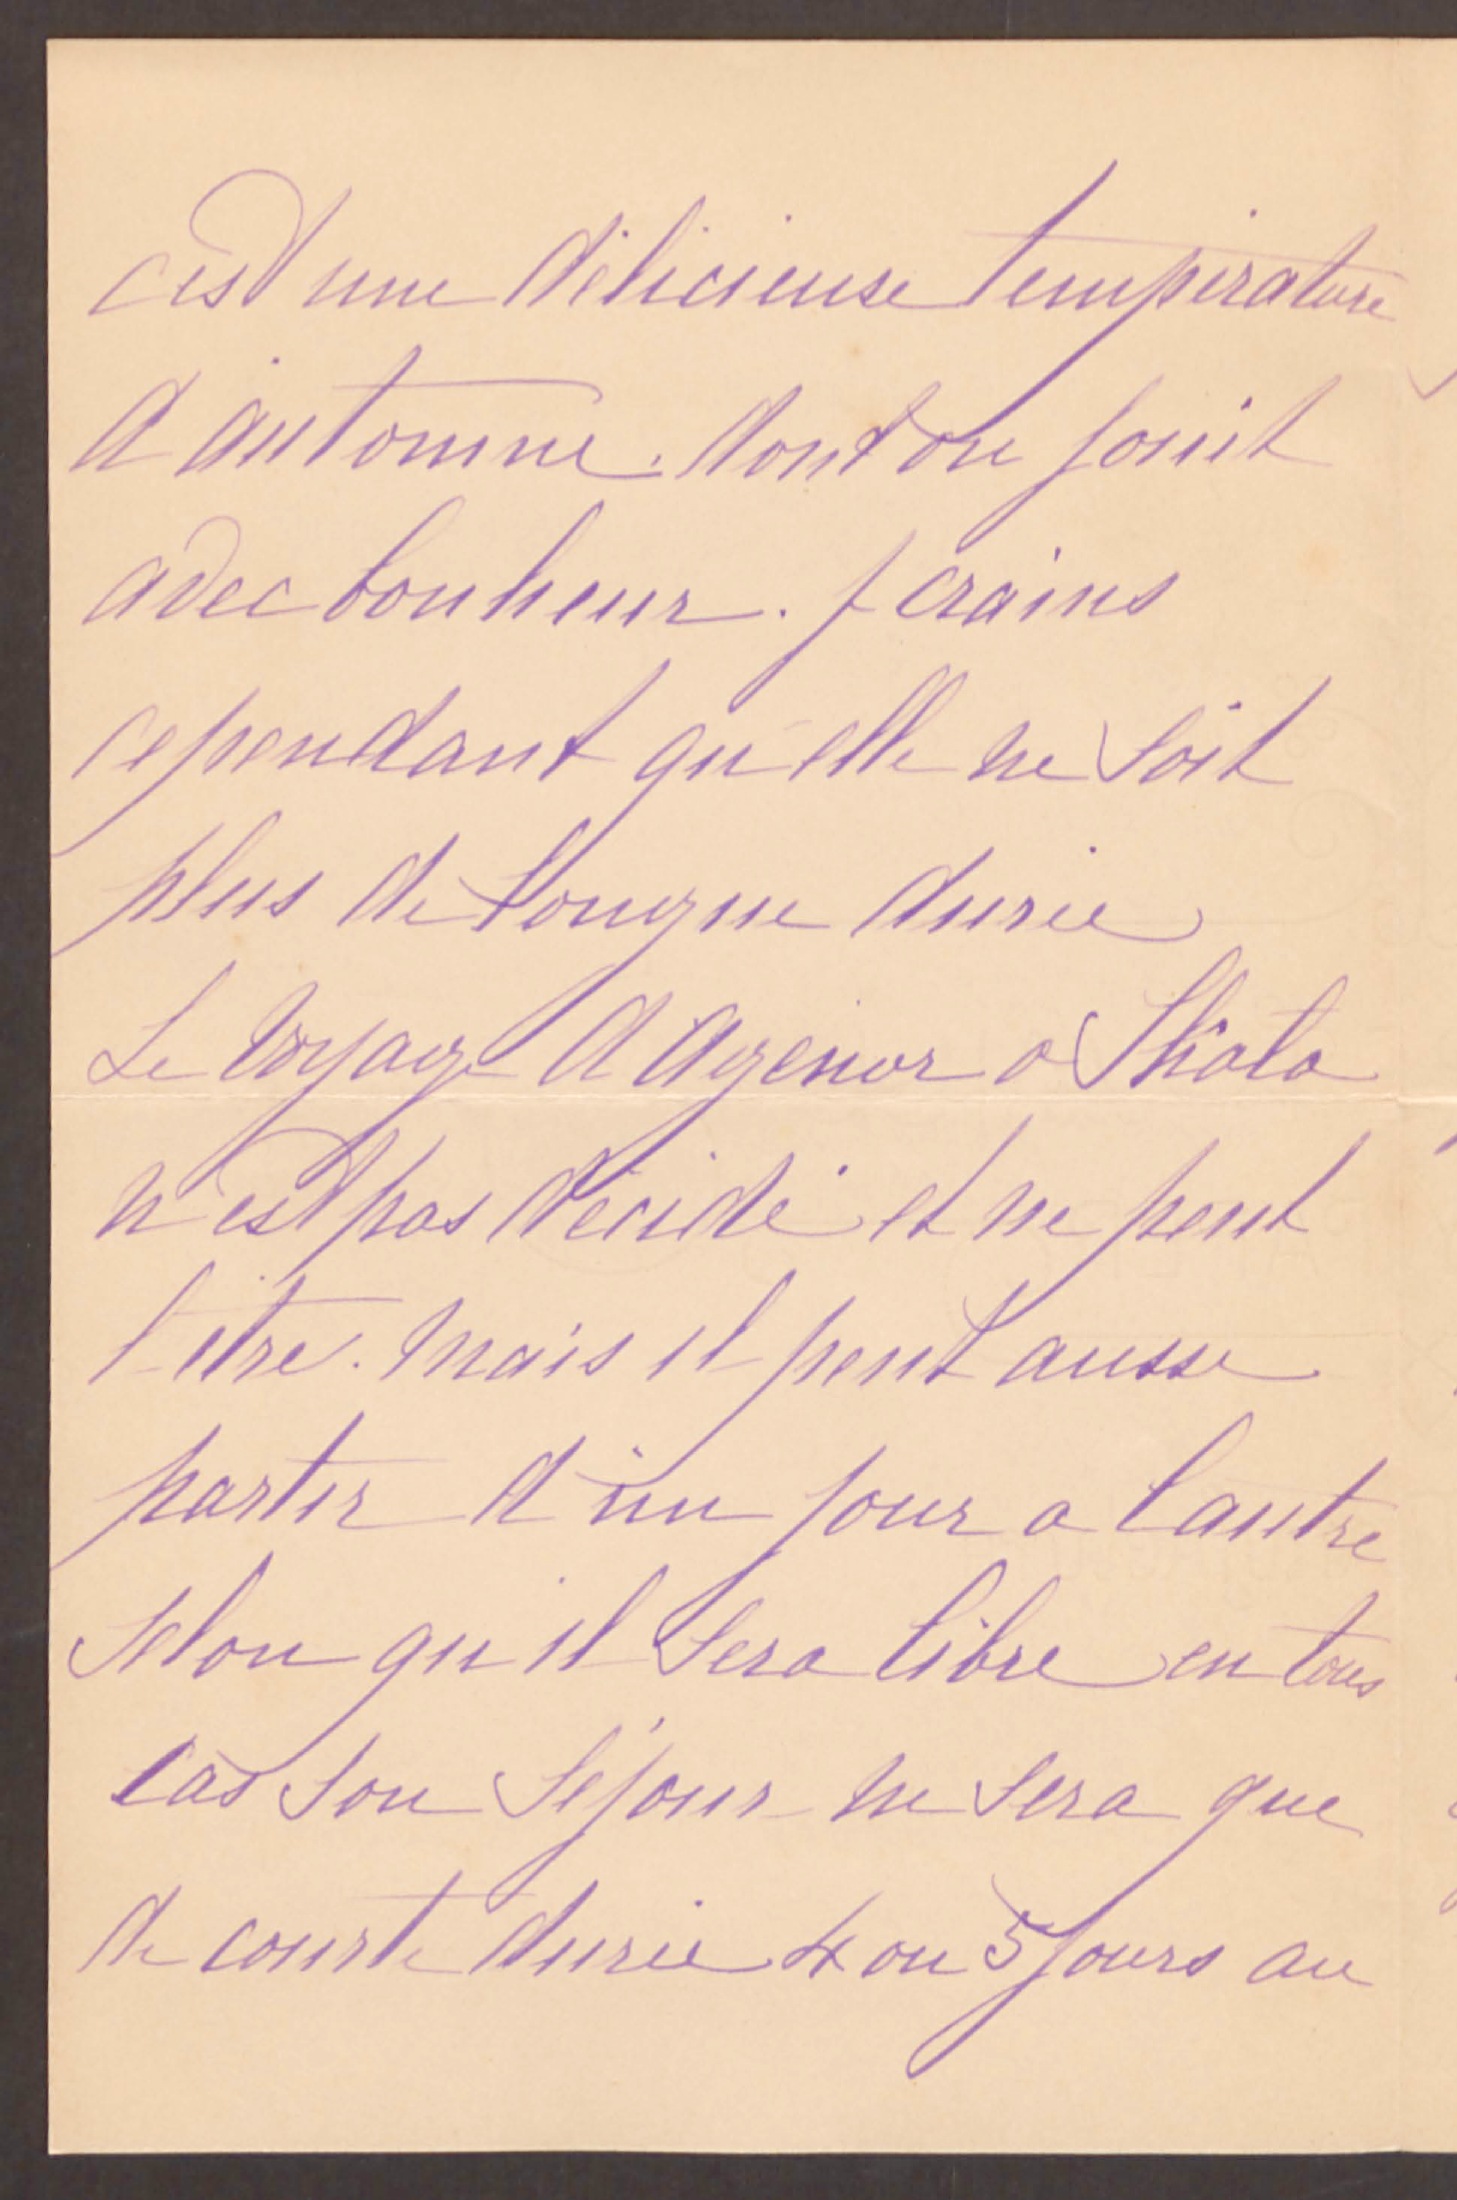 c'est une délicieuse température
d'automne. dont on jouit
avec bonheur. j crains
cependant qu'elle ne soit
plus de longue durée
Le voyage d Agenor a
n'est pas décidé et ne peut
l'être. mais il peut aussi
partir d'un jour a l'autre
selon qu'il sera libre en tous
cas son séjour ne sera que
de courte durée 4 ou 5 jours au